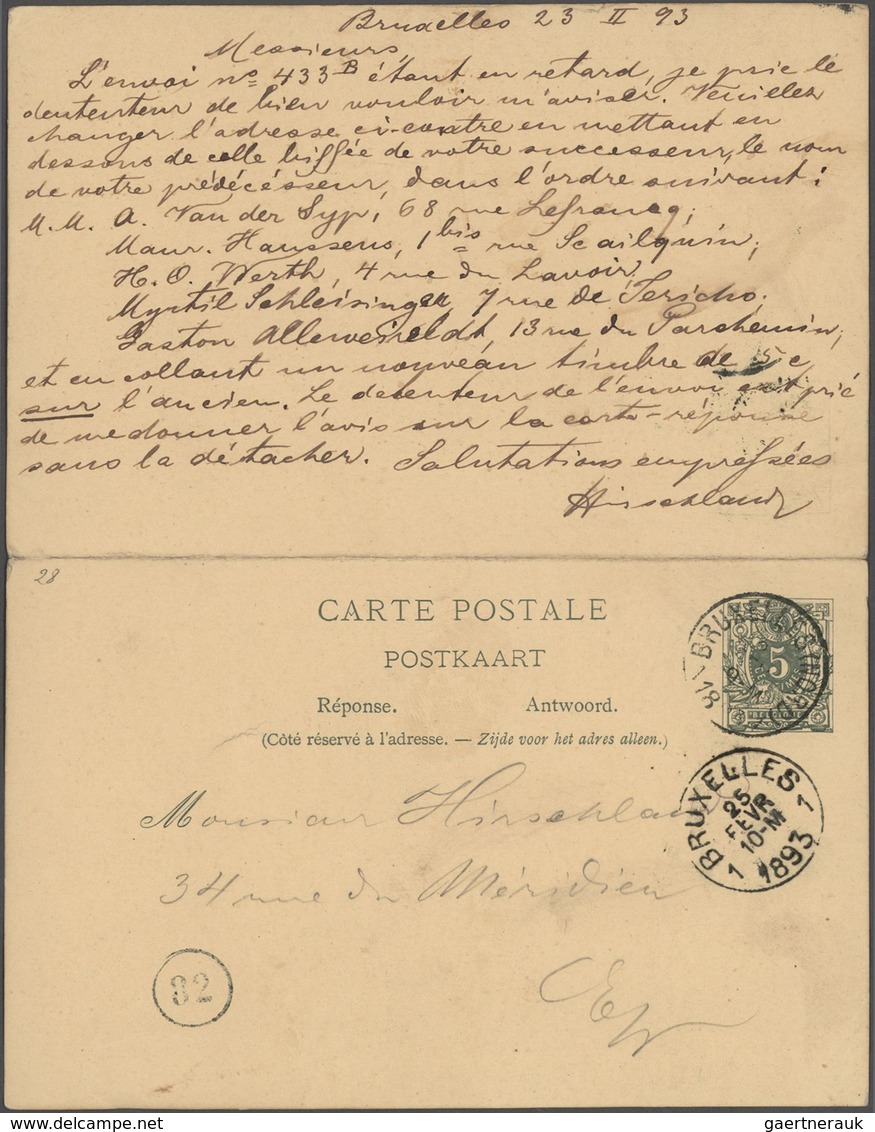 Bruxelles 23 II 93
Messieurs,
L'envoi nº 433 B étant en retard, je prie le
dententeur de bien vouloir m'aviser. Veuillez
changer l'adresse ci-contre en mettant en
dessous de celle biffée de votre successeur, le nom
de votre prédécésseur, dans l'ordre suivant:
M.M. A. Van der Syp, 68 rue Lefrancq;
Maur. Haussens, 1 bis rue Scailquin;
H. O. Werth, 4 rue du Lavoir;
Myrtil Schleisinger, 7 rue de Jericho;
Gaston Alleweireldt, 13 rue du Parchemin;
et en collant un nouveau timbre de 5 c
sur l'ancien. Le detenteur de l'envoi est prié
de me donner l'avis sur la carte-réponse
sans la détacher. Salutations empressées
Hirschland
28
CARTE POSTALE
POSTKAART
Réponse. Antwoord.
(Côté réservé à l'adresse. — Zijde voor het adres alleen.)
5
BRUXELLES
BRUXELLES
25
FEVR
10-M
1 1893 1
Monsieur Hirschland
34 rue du Méridien
E/V
32
gaertnerauk